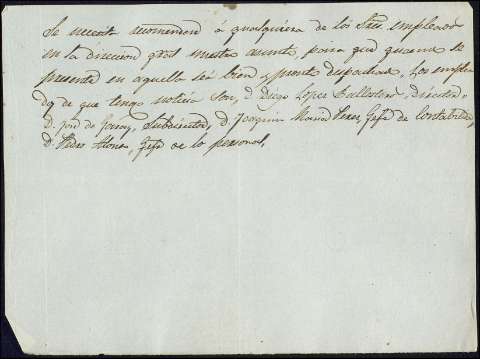 Se necesita recomendar á qualquiera de los Sres. empleados
en la direccion gral nuestro asunto, para que quando se
presente en aquella sea bien y pronto despachado. Los emplea-
dos de que tengo noticia son, D. Diego Lopez Ballesteros, Director,
D. José de Subdirector, D. Joaquin Maria Perez, Gefe de Contabilidad,
D. Pedro Alonso, Gefe de lo personal.